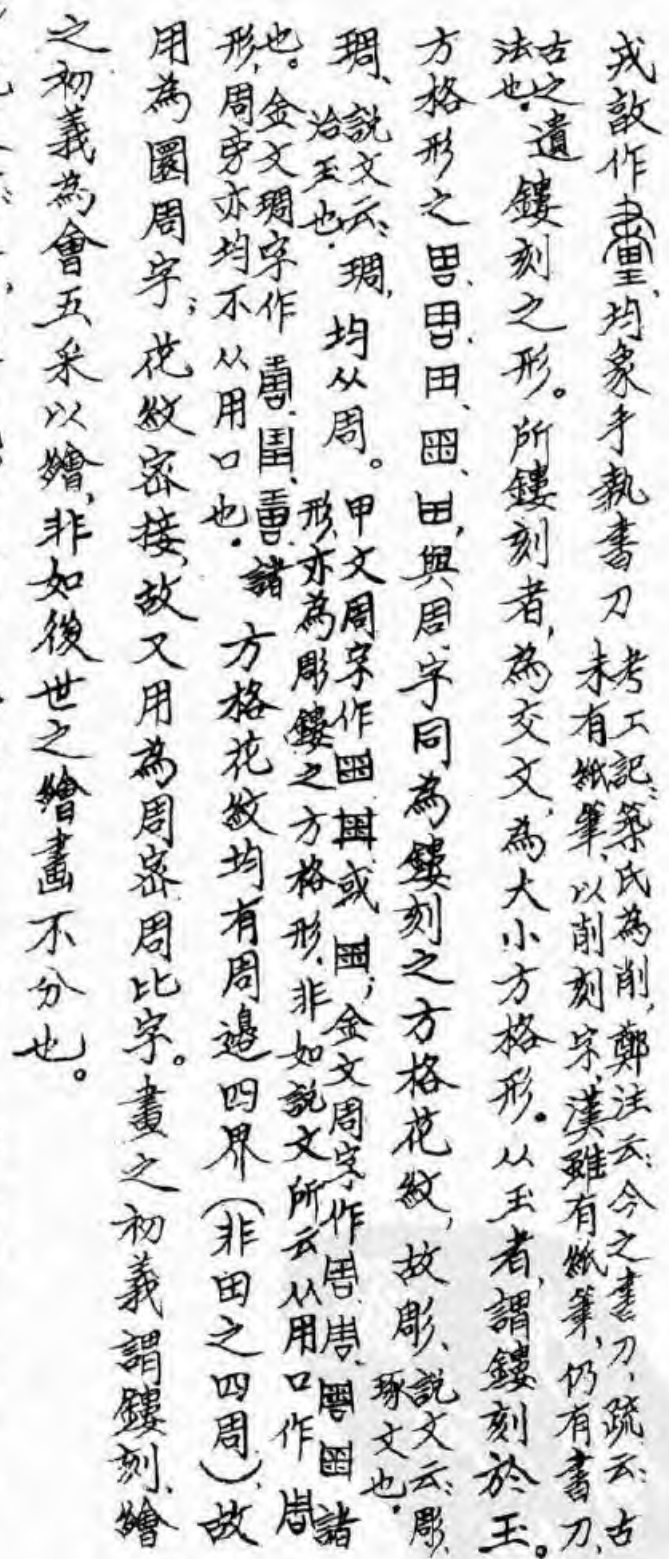 戎敦作、均象手執書刀
考工記：築氏為削，鄭注云：今之書刀，疏云：古
未有紙筆，以削刻字，漢雖有紙筆，仍有書刀，
古之遺
法也。
鏤刻之形。所鏤刻者，為交文，為大小方格形。从玉者，謂鏤刻於玉。
方格形之、、田、、，與周字同為鏤刻之方格花紋，故彫、
說文云：彫，
琢文也。
琱、
說文云：琱，
治玉也。
均从周。
甲文周字作或；金文周字作諸
形，亦為彫鏤之方格形，非如說文所云从用口作周
也。金文琱字作、、諸
形，周旁亦均不从用口也。
方格花紋均有周邊四界（非田之四周），故
用為圜周字；花紋密接，故又用為周密周比字。畫之初義謂鏤刻，繪
之初義為會五采以繪，非如後世之繪畫不分也。